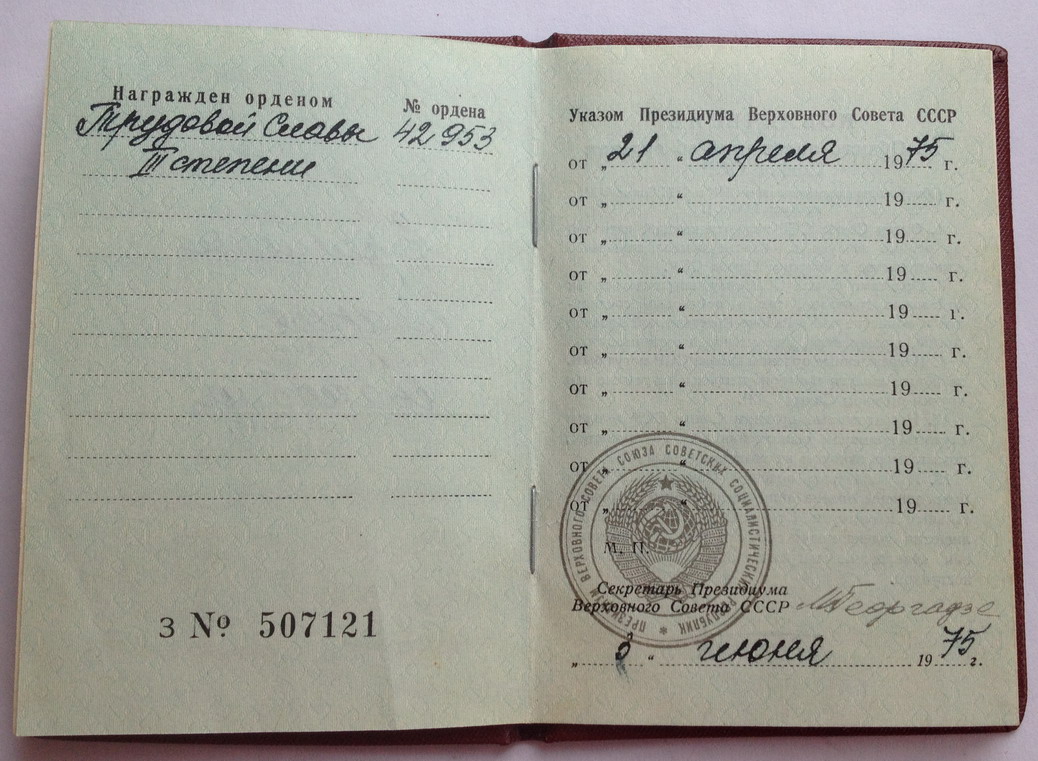 Награжден орденом
№ ордена
Трудовой Славы 42953
III степени
З № 507121
Указом Президиума Верховного Совета СССР
от „21“ апреля 1975 г.
от „ “ 19 г.
от „ “ 19 г.
от „ “ 19 г.
от „ “ 19 г.
от „ “ 19 г.
от „ “ 19 г.
от „ “ 19 г.
от „ “ 19 г.
от „ “ 19 г.
ПРЕЗИДИУМ ВЕРХОВНОГО СОВЕТА СОЮЗА СОВЕТСКИХ СОЦИАЛИСТИЧЕСКИХ РЕСПУБЛИК
М. П.
Секретарь Президиума
Верховного Совета СССР М Георгадзе
„ “ июня 1975 г.